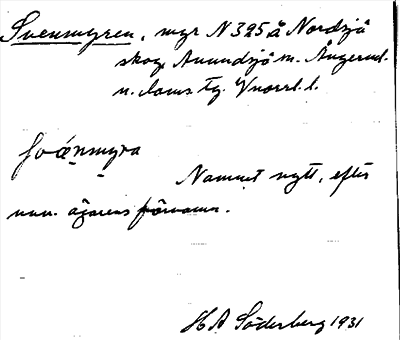 Svenmyren, myr N 325 å Nordsjö
skog Anundsjö sn. Ångerml.
n. doms tg. Vnorrl. l.
Namnet nytt, efter
nuv. ägarens förnamn.
H A Söderberg 1931